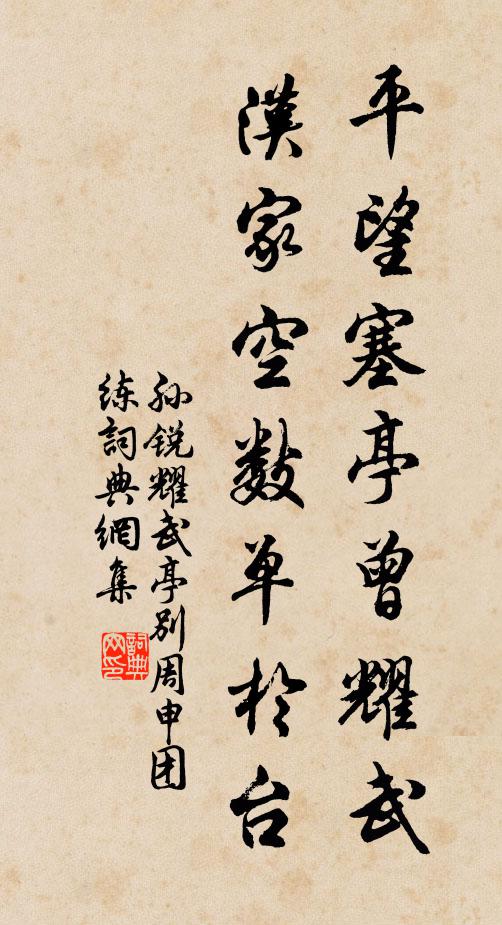 平望塞亭曾耀武
漢家空数单於台
孙锐耀武亭别周申团
练詞典網集
詞典
网印